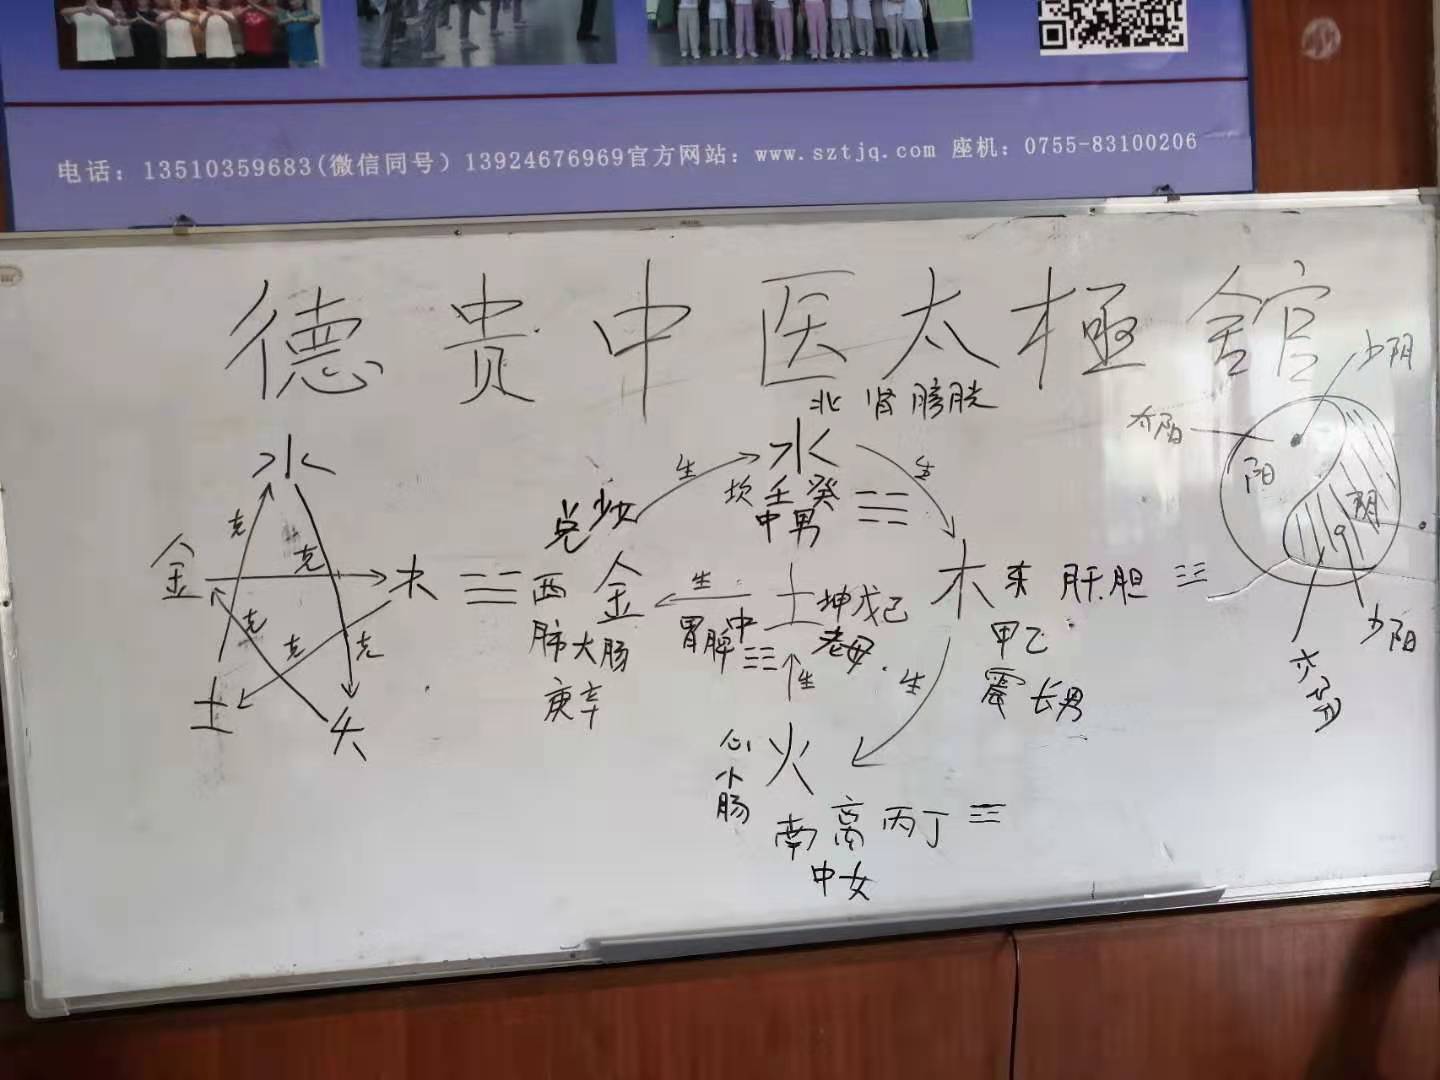 电话：13510359683(微信同号) 13924676969官方网站：www.sztjq.com 座机：0755-83100206
德贵中医太極舘
北 肾 膀胱
水
克
克
金
木
克
克
克
土
火
兑 少女
生
水
生
坎 壬 癸
中男
西 金
肺大肠
庚辛
生
胃脾中
土
坤戊己
老母
生
木 东 肝胆
甲乙
震 长男
生
心 火
小肠
南 离 丙丁
中女
少阴
太阳
阳
阴
少阳